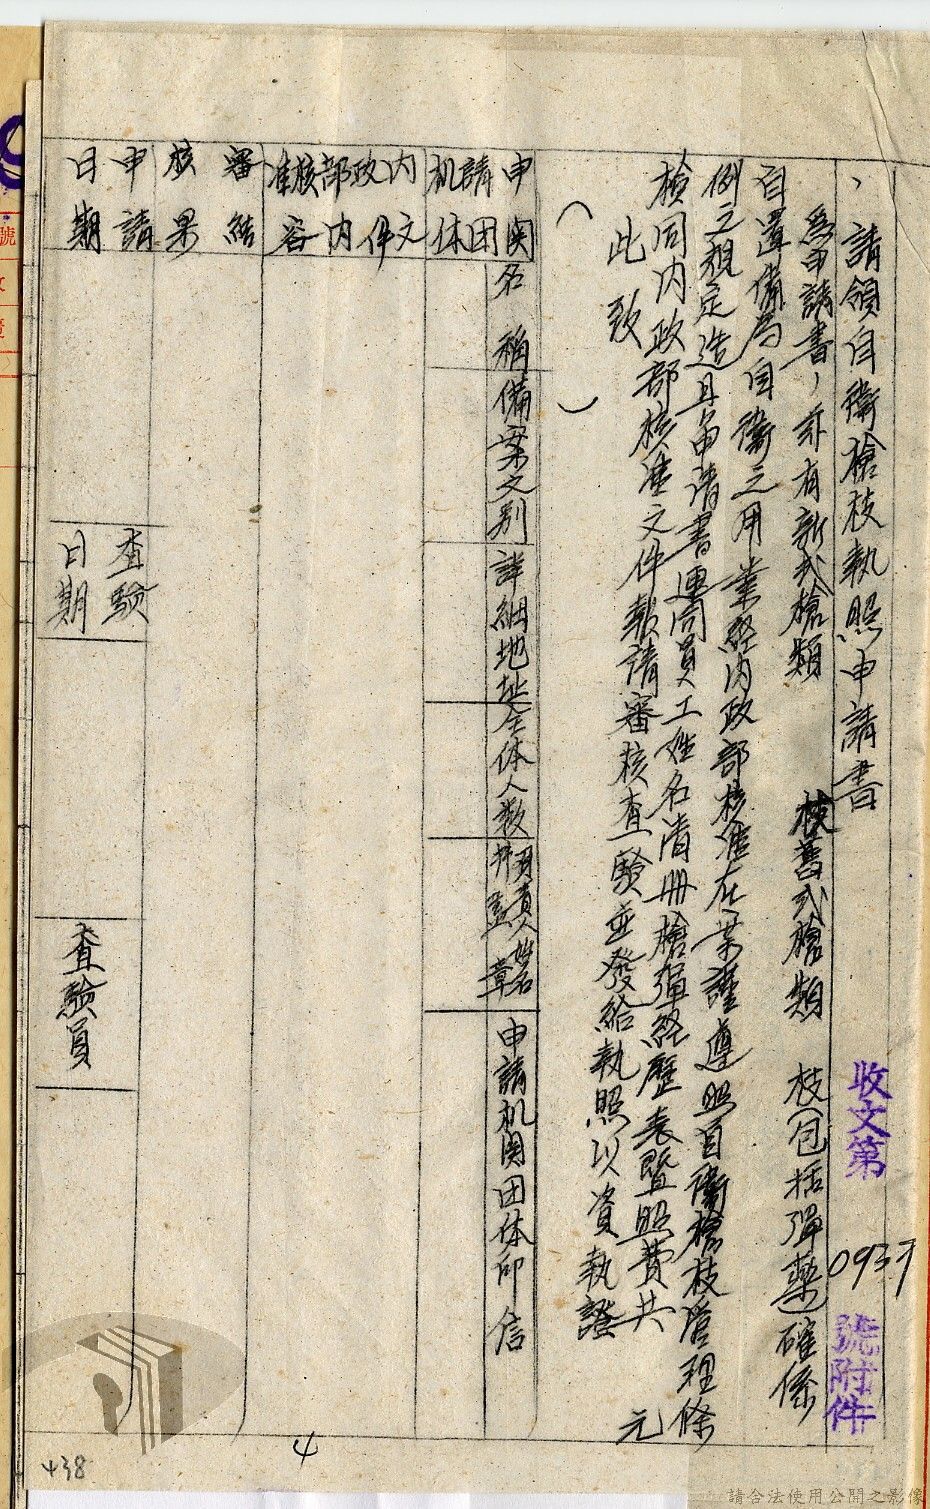 、請領自衛槍枝執照申請書
為申請書，計有新式槍類　枝舊式槍類　枝（包括彈藥）確係
自置備為自衛之用業經內政部核准在案謹遵照自衛槍枝管理條
例之規定造具申請書連同員工姓名清冊槍彈經歷表暨照費共　元
檢同內政部核准文件報請審核查驗並發給執照以資執證
此致
（　　）
申請机関団体
名稱
備案之別
詳細地址
全体人数
負責人姓名
并蓋章
申請机関団体印信
內政部核准
文件內容
審核結果
申請日期
查驗日期
查驗員
收文第
0937
號附件
4
438
號
請合法使用公開之影像